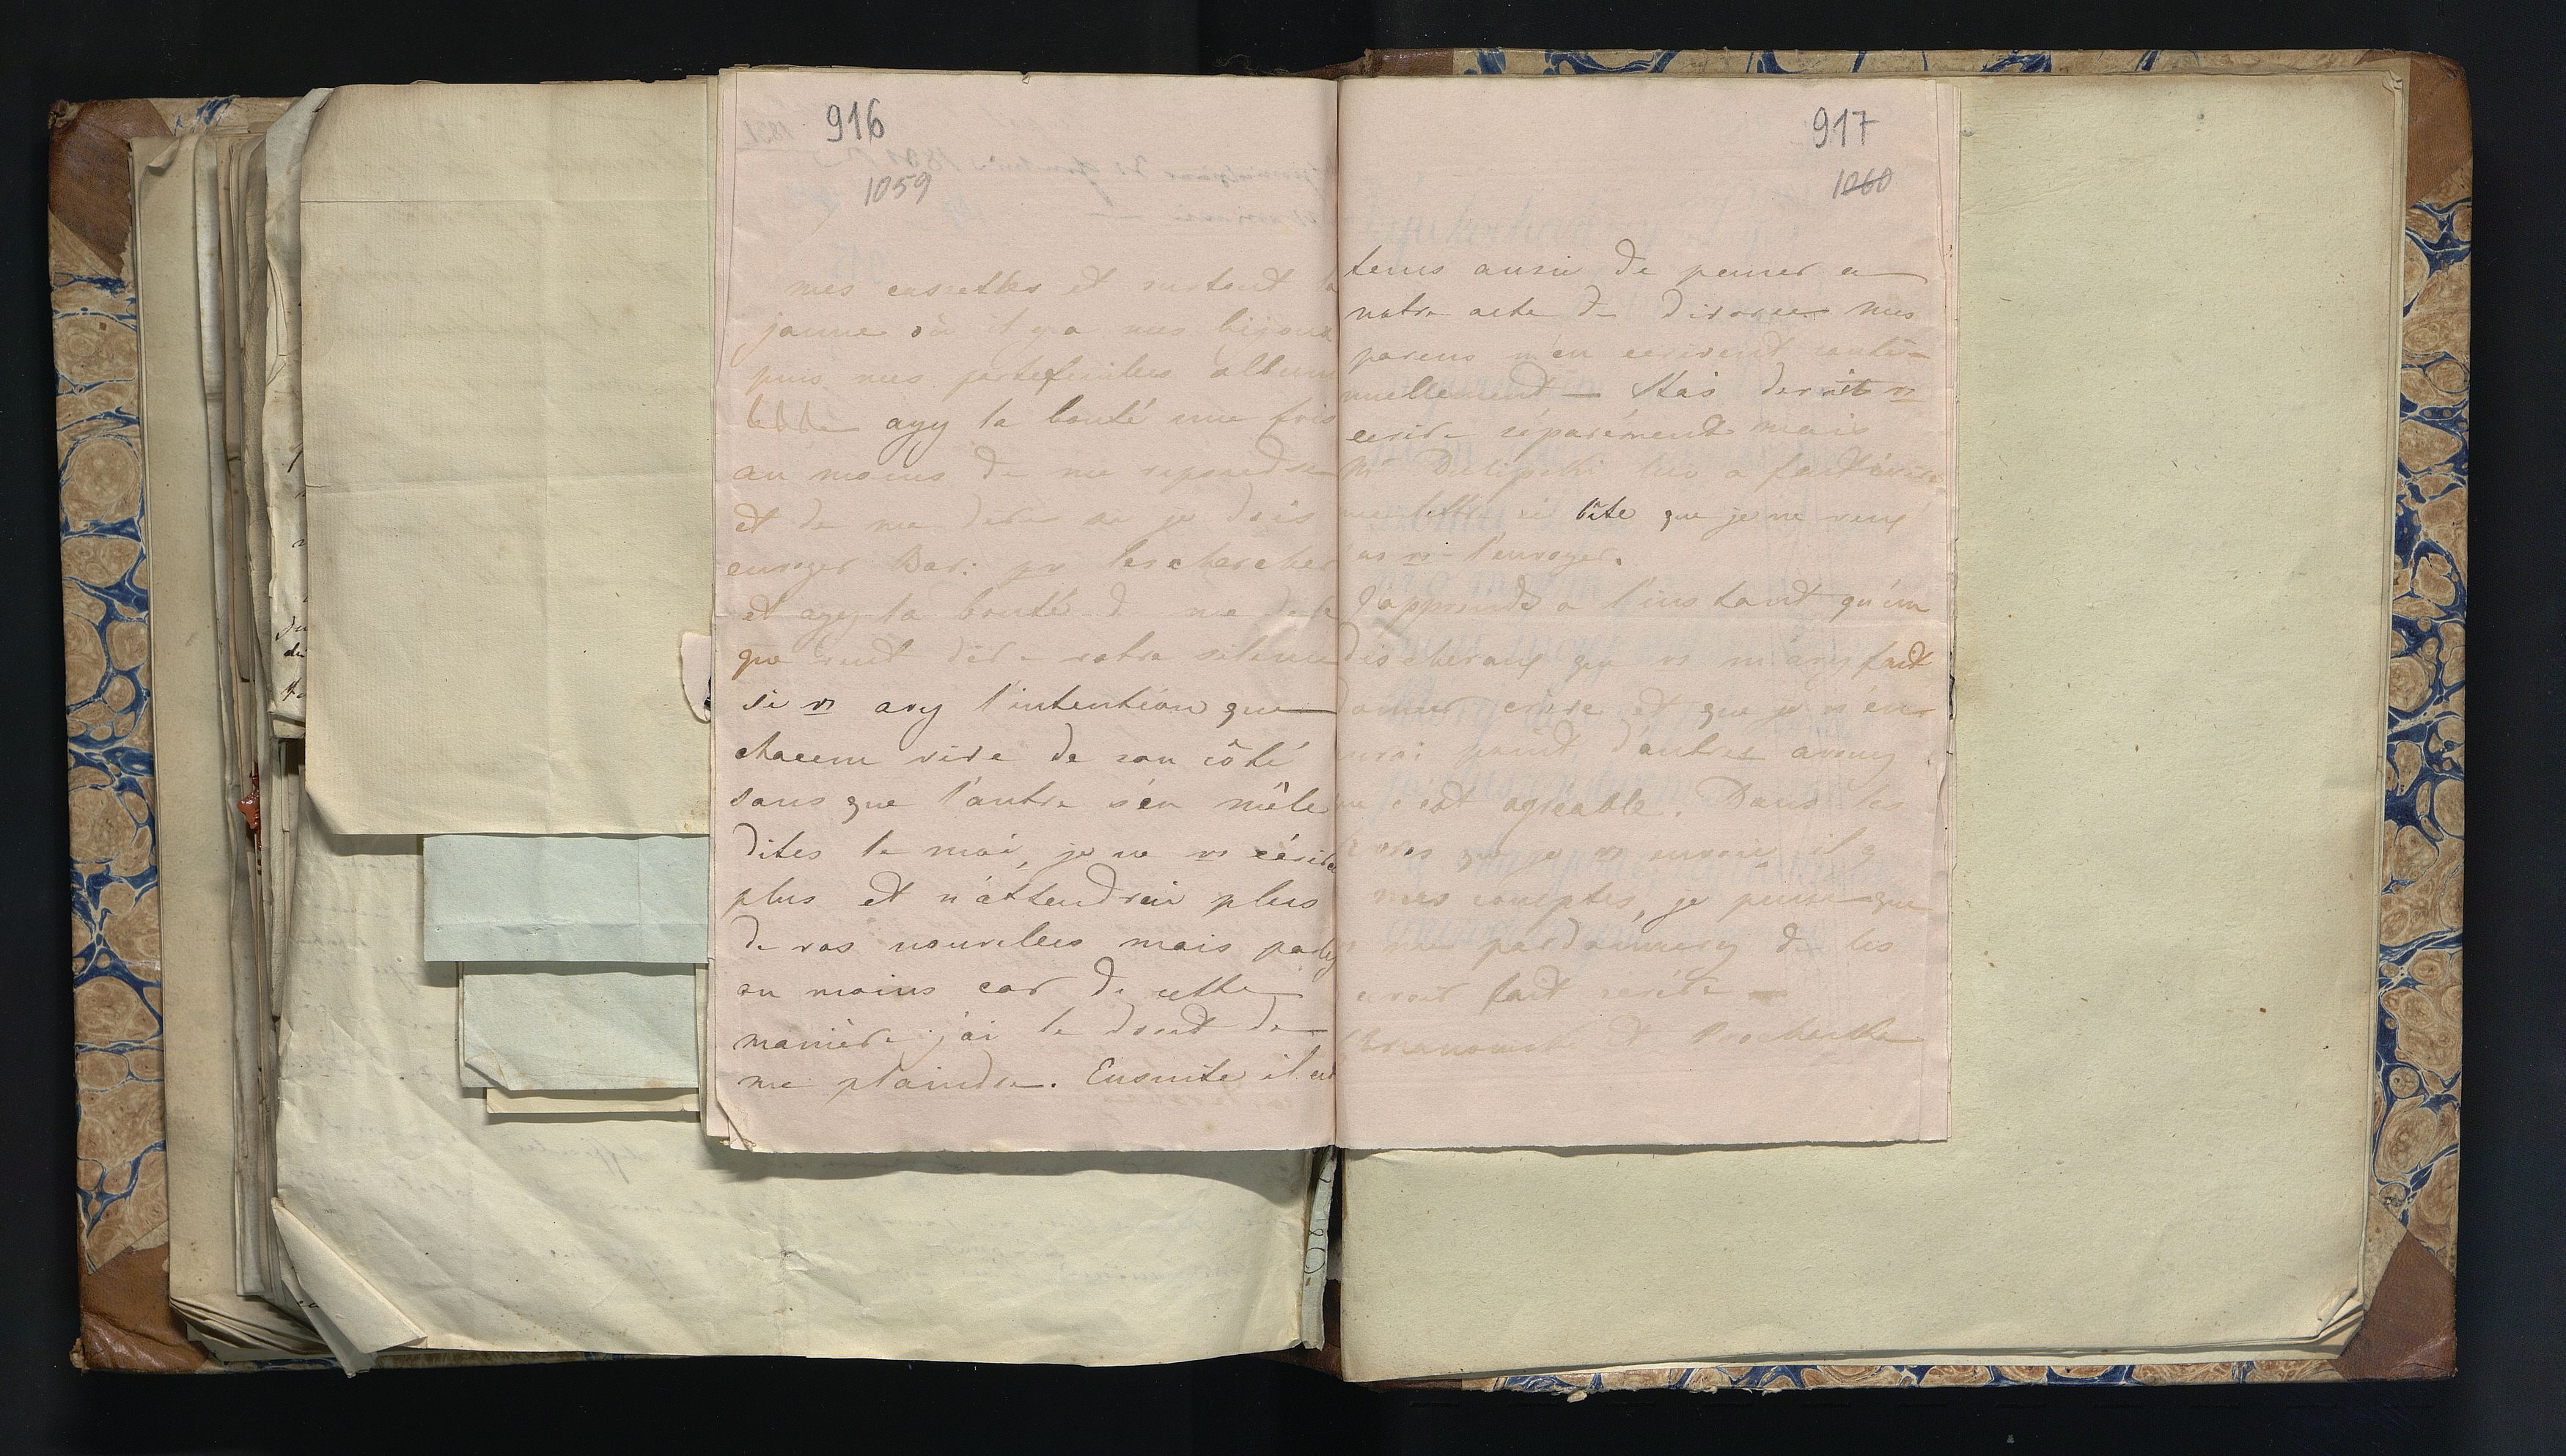 916
1059
mes cassettes et surtout la
jaune où il y a mes bijoux
puis mes portefeuilles album
ayy la bonté une fois
au moins de me repondre
et de me dire ou je dois
envoyer Bar: pr les chercher
et ayez la bonté de me dire
que veut dire votre silence
si vs avy l'intention que
chacun vive de son côté
sans que l'autre s'en mêle
dites le moi, je ne vs écrirai
plus et n'attendrai plus
de vos nouvelles mais parly
au moins car de cette
manière j'ai le droit de
me plaindre. Ensuite il est
917
1060
tems aussi de penser a
notre acte de divorce mes
parens m'en ecrivent conti-
nuellement — Stas devait vs
ecrire séparément mais
Mr lui a fait écrire
une lettre si bête que je ne veux
pas vs l'envoyer.
J'apprends a l'instant qu'un
des chevaux que vs m'avy fait
donner crève et que je n'en
aurai point d'autres avouy
que c'est agréable. Dans les
que je vs envoie il y a
mes comptes, je pense que
vs me pardonnerez de les
avoir fait